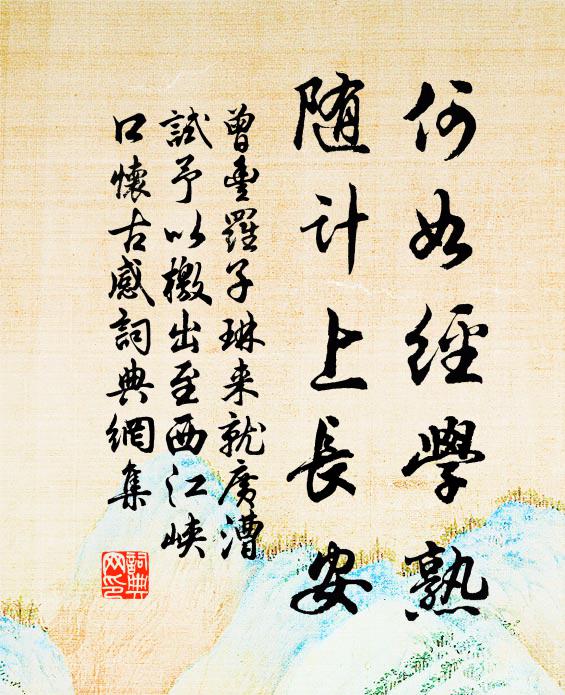 何如經學熟
随计上長安
曾豐羅子琳来就廣漕
試予以檄出至西江峡
口懷古感詞典網集
詞典
网印